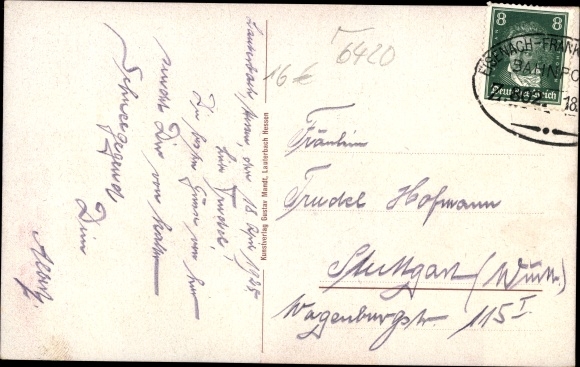 Lauterbach, Hessen den 18. 1928.
Liebe Trudel!
Die besten Grüße von hier
sendet Dir von kalten
Schneegegend
Dein
Albert.
Kunstverlag Gustav Mandt, Lauterbach Hessen
16 €
6420
8 8
Deutsches Reich
EISENACH-FRANKF
BAHNPO
18
Fräulein
Trudel Hofmann
Stuttgart (Württ.)
Wagenburgstr. 115 I